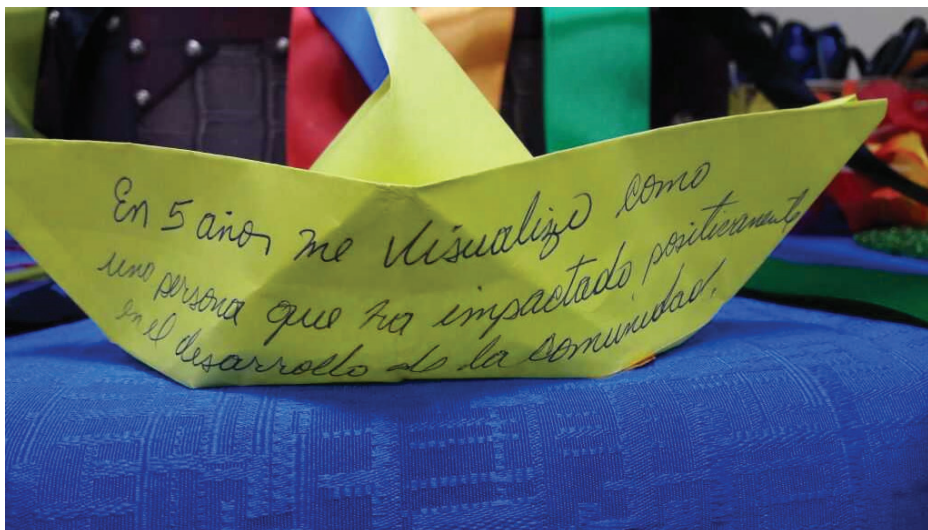 En 5 años me visualizo como
una persona que ha impactado positivamente
en el desarrollo de la comunidad.